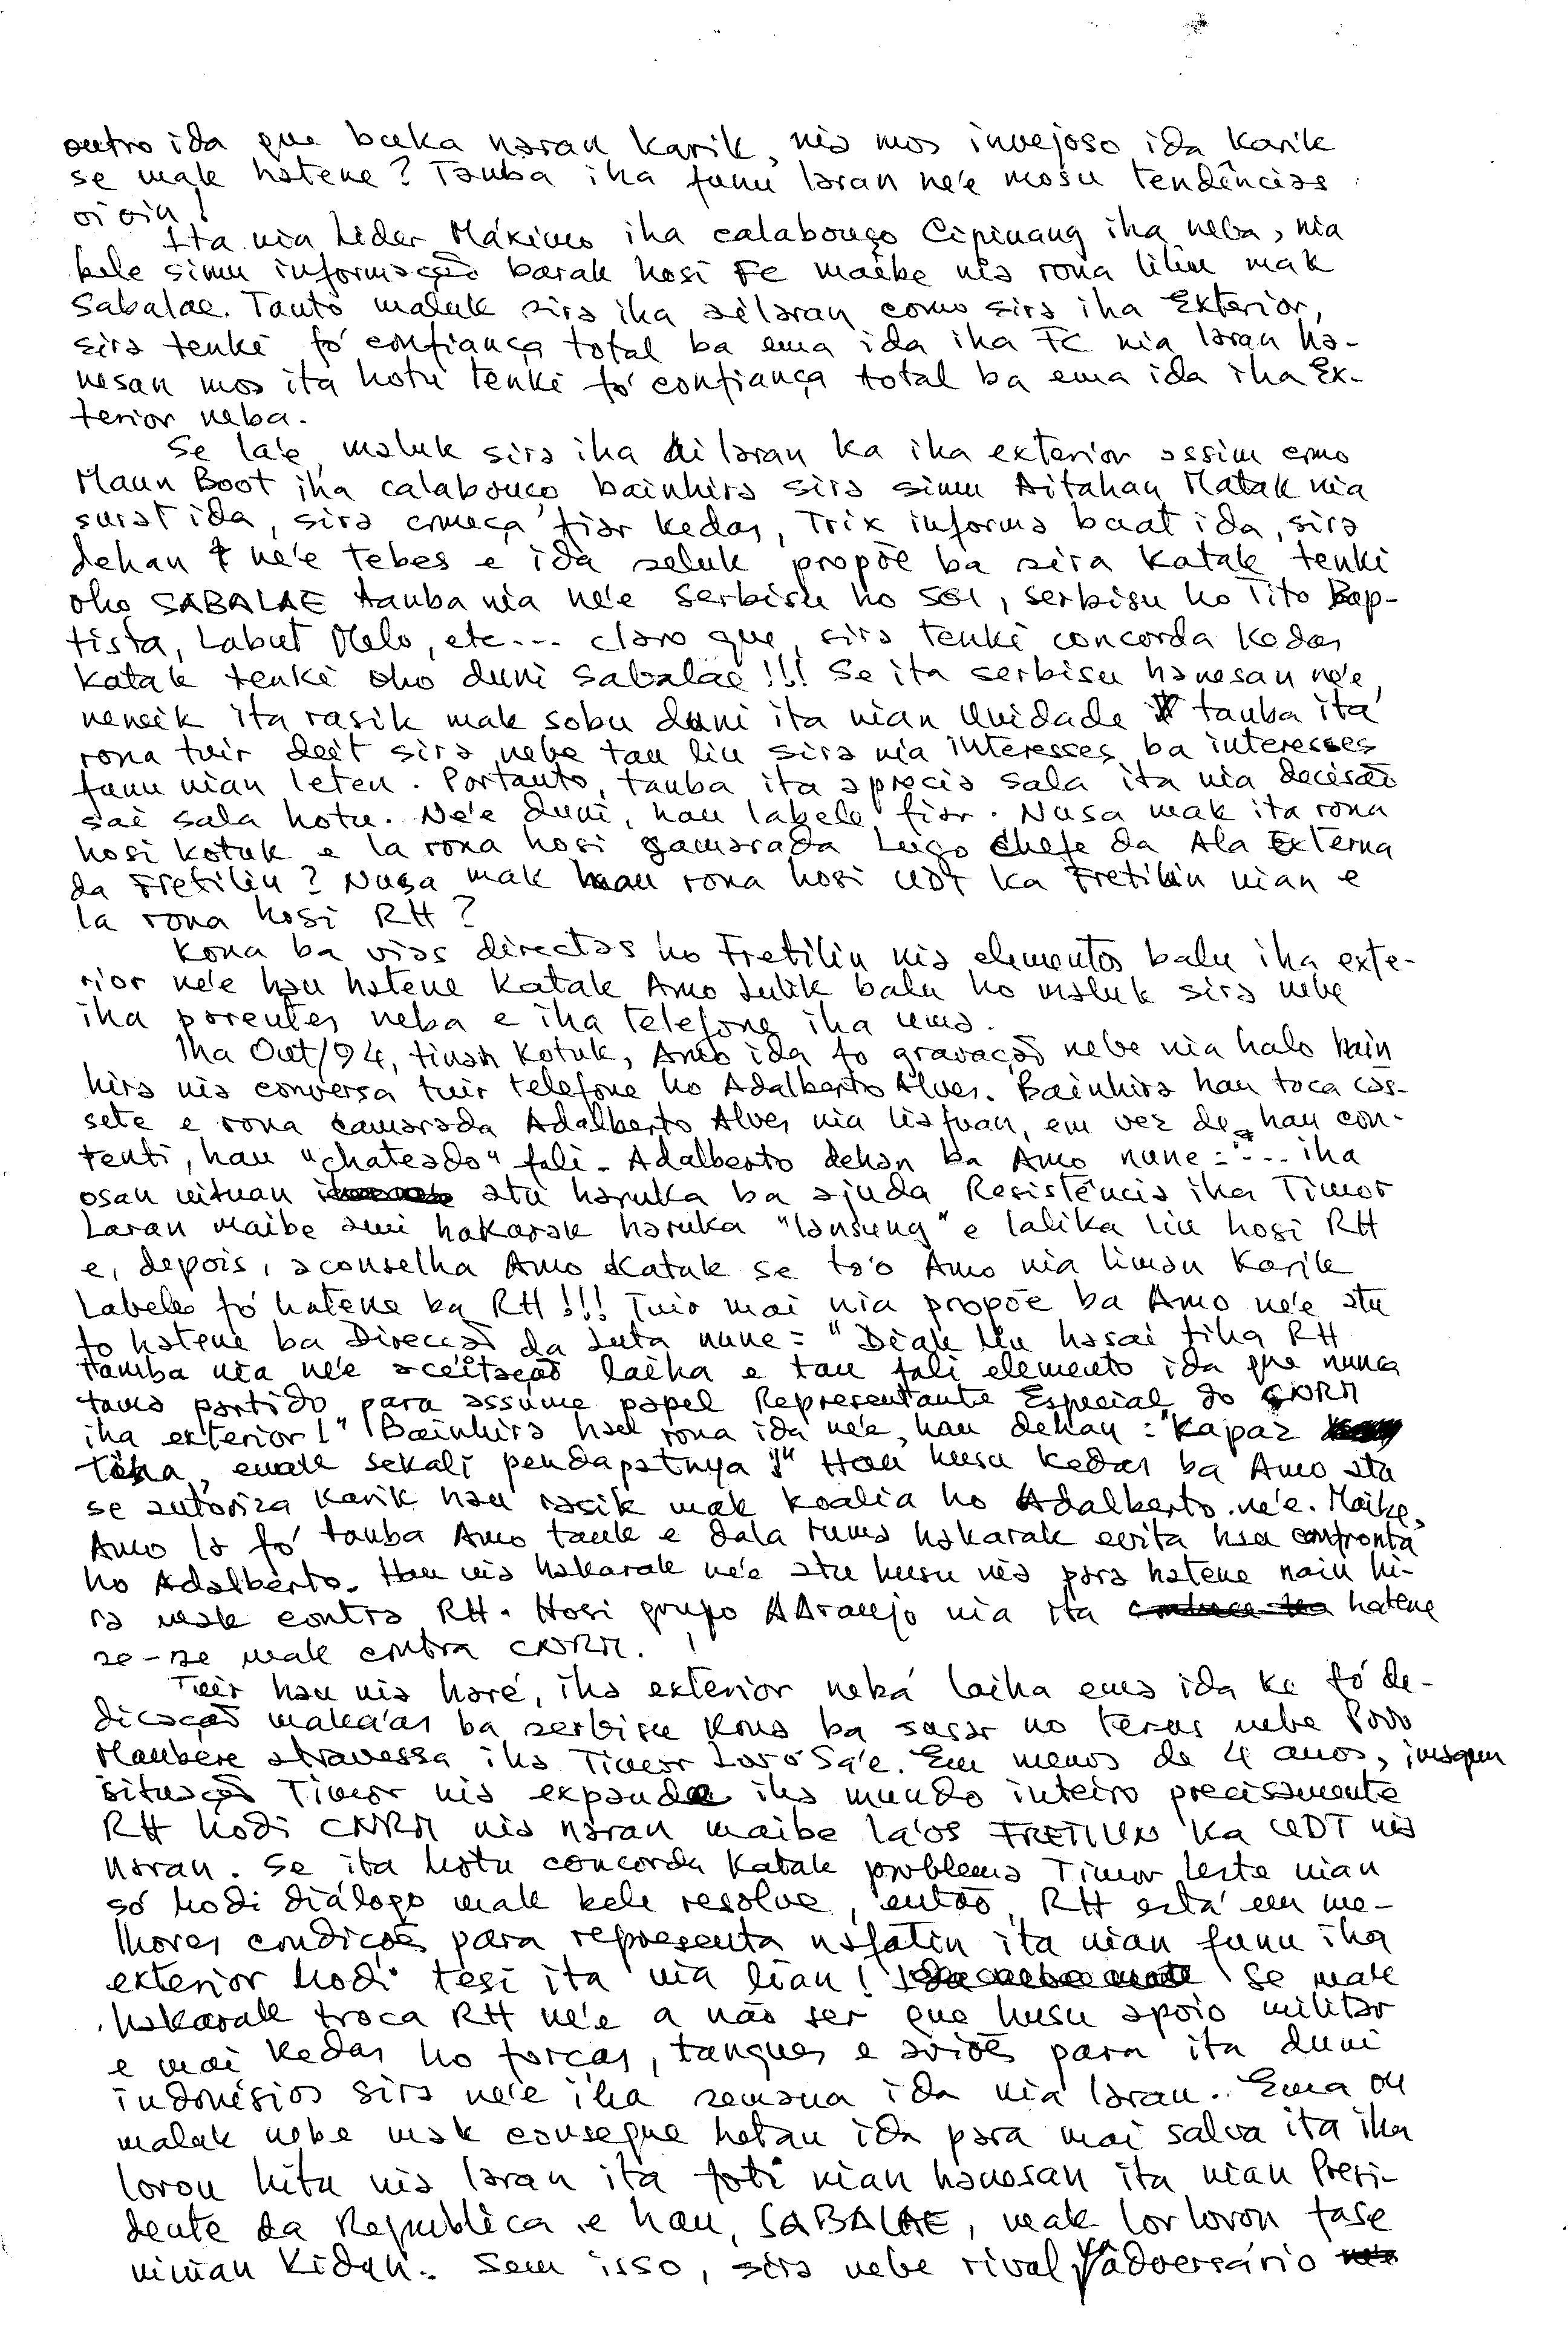 outro ida que buka naran karik, nia mos invejoso ida karik
se mak hatene? Tanba iha funu laran ne'e mosu tendências
oi oin!
Ita nia Lider Máximo iha calabouço Cipinang iha neba, nia
bele simu informação barak hosi FC maibe nia rona liliu mak
Sabalae. Tanto maluk sira iha ailaran como sira iha Exterior,
sira tenke fó confiança total ba ema ida iha FC nia laran ha-
nesan mos ita hotu tenke fó confiança total ba ema ida iha Ex-
terior neba.
Se la'e, maluk sira iha Ai laran ka iha exterior assim como
Maun Boot iha calabouço bainhira sira simu Aitahan Matak nia
surat ida, sira começa fiar kedas, Trix informa buat ida, sira
dehan ne'e tebes e ida seluk propõe ba sira katak tenki
oho SABALAE tanba nia ne'e serbisu ho SGI, serbisu ho Tito Bap-
tista, Labut Melo, etc... claro que, sira tenke concorda kedas
katak tenke oho duni Sabalae!!! Se ita serbisu hanesan ne'e,
neneik ita rasik mak sobu duni ita nian Unidade tanba ita
rona tuir deit sira nebe tau liu sira nia interesses ba interesses
funu nian leten. Portanto, tanba ita aprecia sala ita nia decisão
sai sala hotu. Ne'e duni, hau labele fiar. Nusa mak ita rona
hosi kotuk e la rona hosi camarada Lugo Chefe da Ala Externa
da Fretilin? Nusa mak hau rona hosi UDT ka Fretilin nian e
la rona hosi RH?
Kona ba vias directas ho Fretilin nia elementos balu iha exte-
rior ne'e hau hatene katak Amo Lulik balu ho maluk sira nebe
iha parentes neba e iha telefone iha uma.
Iha Out/94, tinan kotuk, Amo ida fo gravação nebe nia halo bain
hira nia conversa tuir telefone ho Adalberto Alves. Bainhira hau toca cas-
sete e rona camarada Adalberto Alves nia liafuan, em vez de hau con-
tenti, hau "chateado" fali. Adalberto dehan ba Amo nune = "... iha
osan uituan atu haruka ba ajuda Resistência iha Timor
Laran maibe ami hakarak haruka "lansung" e lalika liu hosi RH
e, depois, aconselha Amo katak se to'o Amo nia liman karik
Labele fó hatene ba RH!!! Tuir mai nia propõe ba Amo ne'e atu
fo hatene ba Direcção da Luta nune = "Diak liu hasai tiha RH
tamba nia ne'e aceitação laiha e tau fali elemento ida que nunca
tama partido para assume papel Representante Especial do CNRM
iha exterior!" Bainhira hau rona ida ne'e, hau dehan: "Kapaz
tiha, enak sekali pendapatnya!" Hau husu kedas ba Amo atu
se autoriza karik hau rasik mak koalia ho Adalberto ne'e. Maibe,
Amo la fó tanba Amo tauk e dala ruma hakarak evita hau confronta
ho Adalberto. Hau nia hakarak ne'e atu husu nia para hatene nain hi-
ra mak contra RH. Hosi grupo AAraujo nia ita hatene
se-se mak contra CNRM.
Tuir hau nia haré, iha exterior nebá laiha ema ida ke fó de-
dicação maka'as ba serbisu kona ba susar no terus nebe Povo
Maubere atravessa iha Timor Loro Sa'e. Em menos de 4 anos, imagem
situação Timor nia expande iha mundo inteiro precisamente
RH hodi CNRM nia naran maibe la'os FRETILIN ka UDT nia
naran. Se ita hotu concorda katak problema Timor Leste nian
só hodi diálogo mak bele resolve, então, RH está em me-
lhores condições para representa nafatin ita nian funu iha
exterior hodi tesi ita nia lian! Se mak
hakarak troca RH ne'e a não ser que husu apoio militar
e mai kedas ho forças, tanques e aviões para ita duni
indonésios sira ne'e iha semana ida nia laran. Ema ou
maluk nebe mak consegue hetan ida para mai salva ita iha
loron hitu nia laran ita foti nian hanesan ita nian Presi-
dente da República e hau, SABALAE, mak lor loron fase
ninian kidun. Sem isso, sira nebe rival adversário